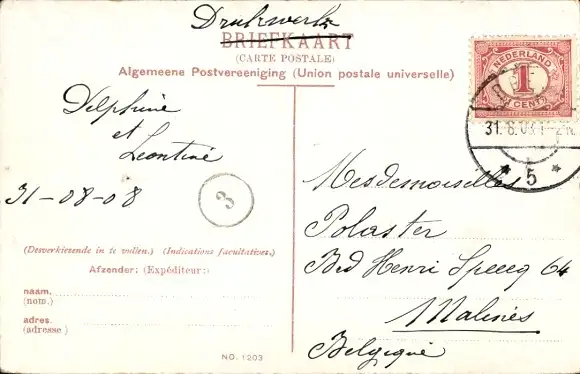 Drukwerk
BRIEFKAART
(CARTE POSTALE)
Algemeene Postvereeniging (Union postale universelle)
NEDERLAND
1
CENT
31.8.08
5
Delphine
et
Leontine
31-08-08
3
Mesdemoiselles
Polaster
Bvd Henri Speecq 64
Malines
Belgique
(Desverkiezende in te vullen.) (Indications facultatives.)
Afzender: (Expéditeur:)
naam.
(nom.)
adres.
(adresse)
NO. 1203